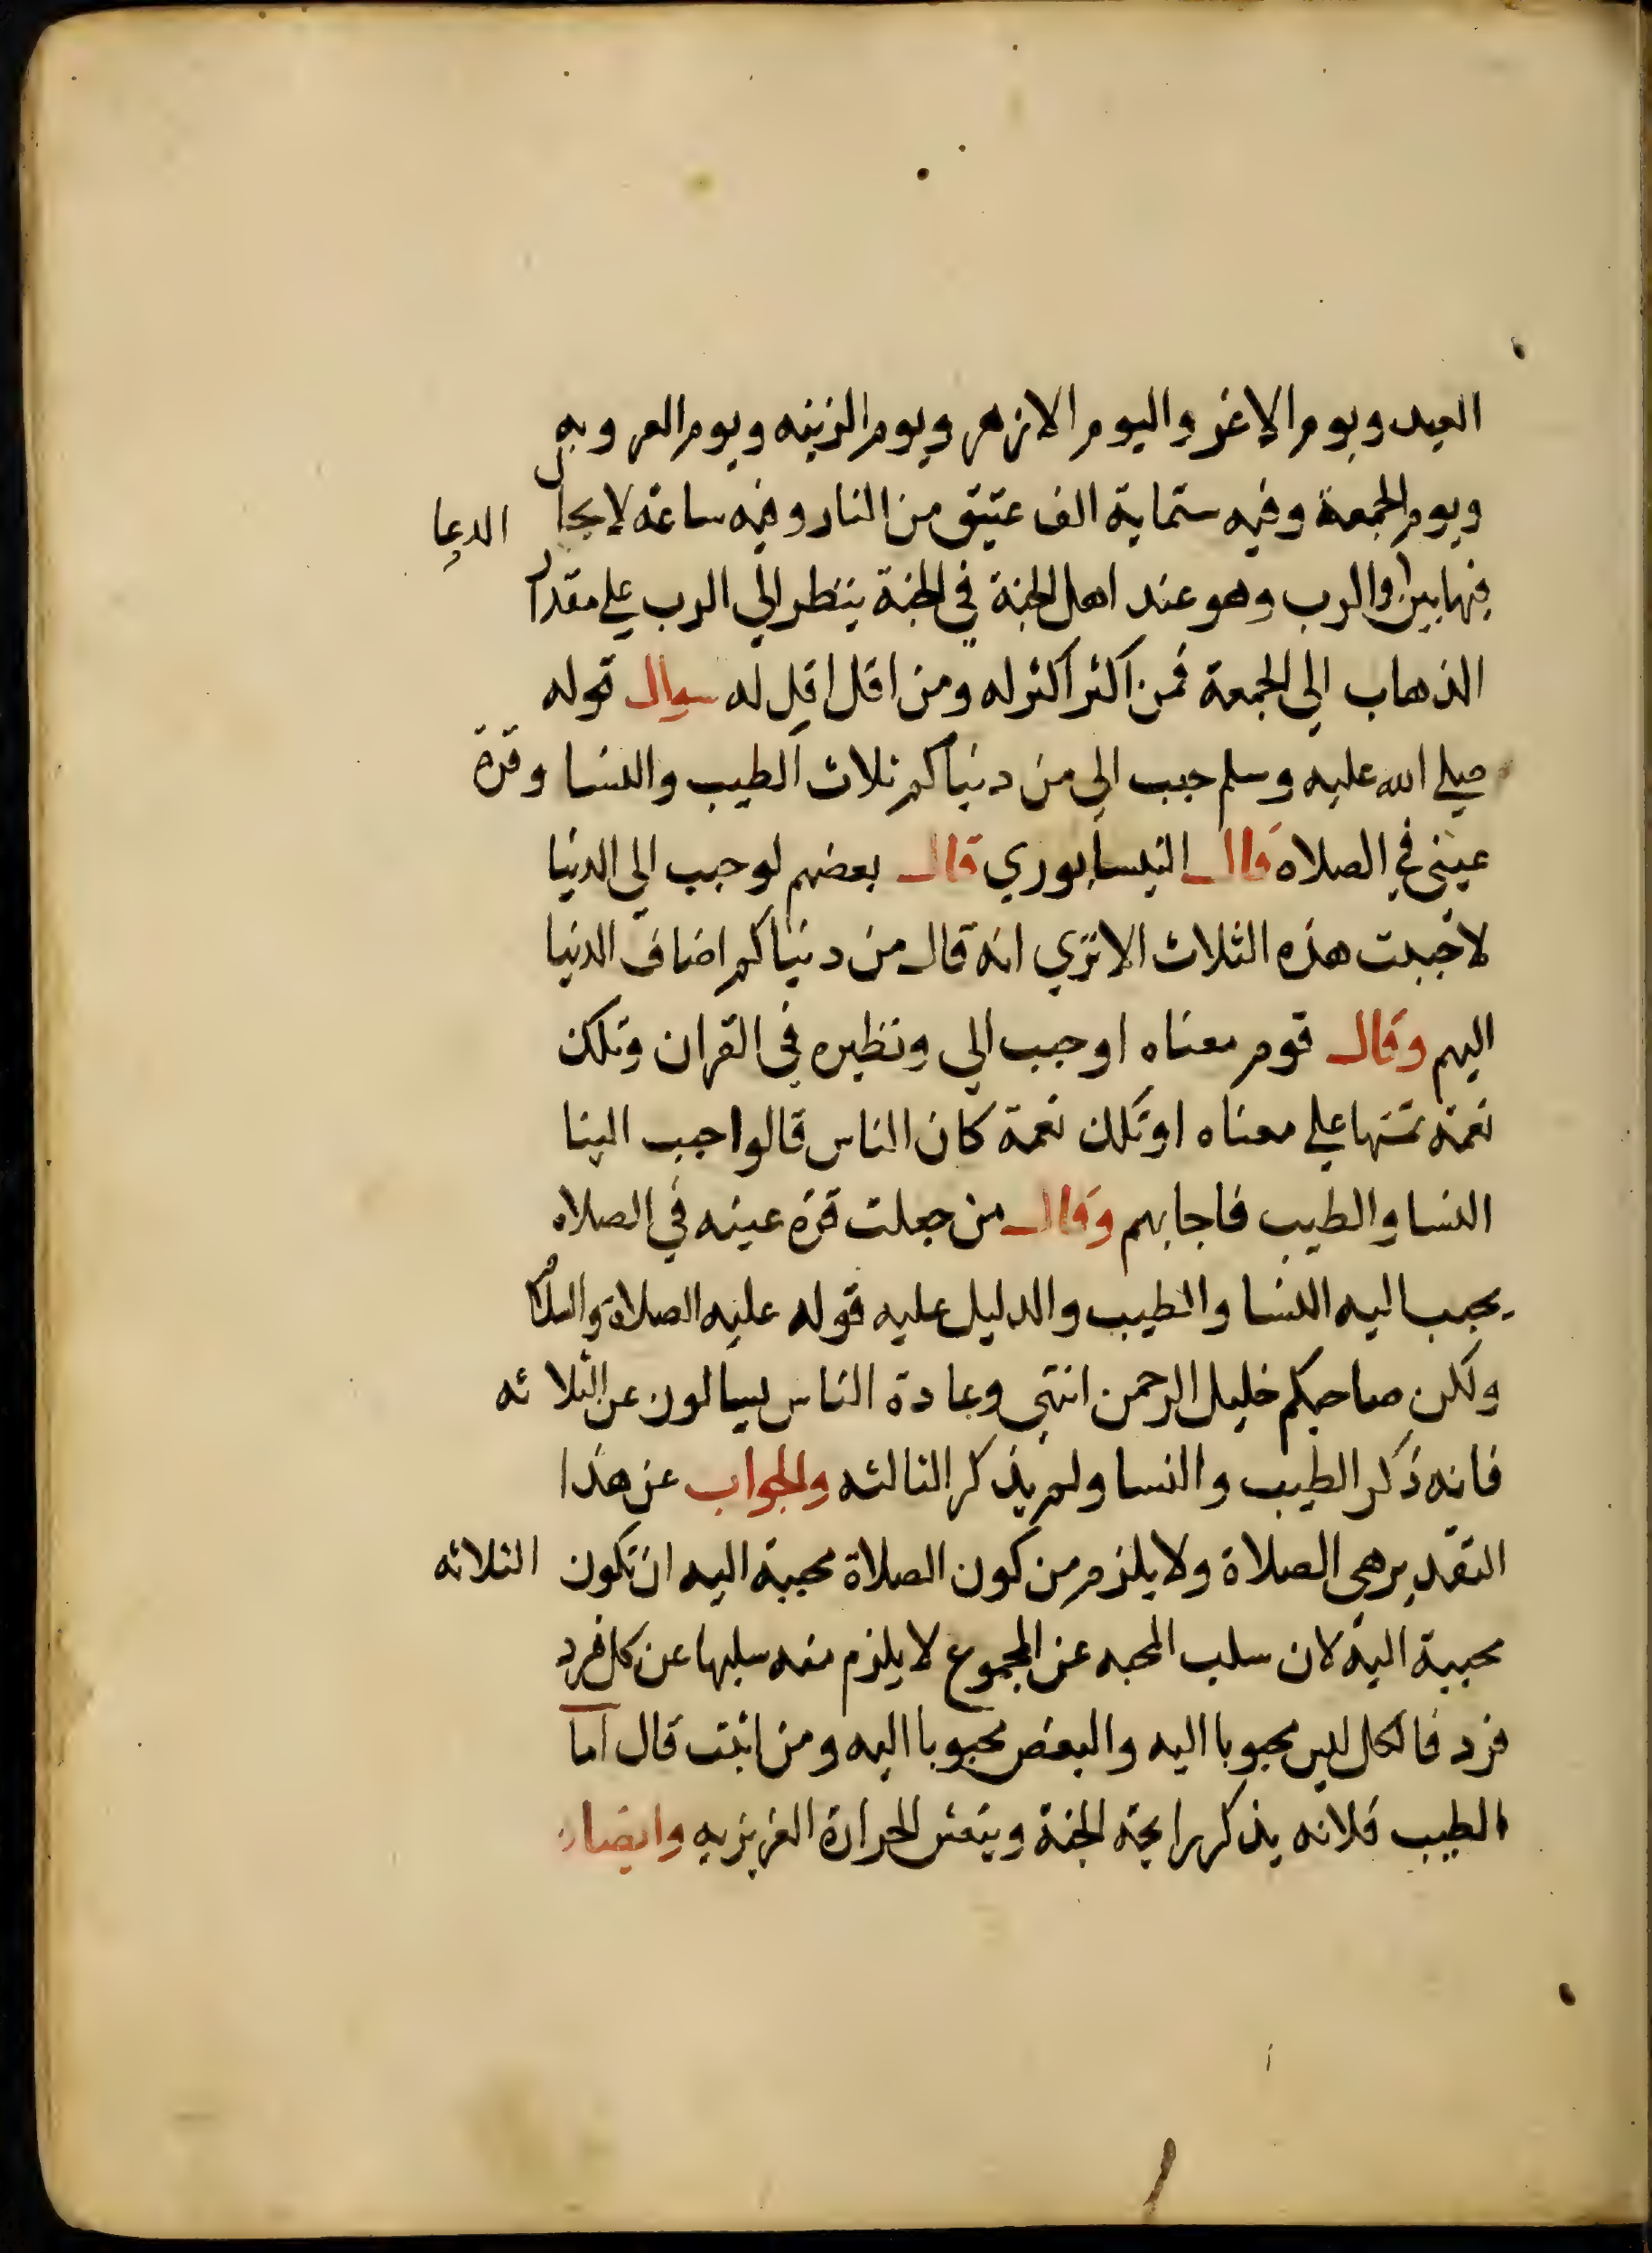 العيد ويوم الاغر واليوم الازهر ويوم الزينه ويوم العروبه
ويوم الجمعة وفيه ستماية الف عتيق من النار وفيه ساعة لا يحال الدعا
فيها بين والرب وهو عند اهل الجنة في الجنة ينظر الي الرب علي مقدار
الذهاب الي الجمعة فمن اكثر اكثر له ومن اقل اقل له سوال قوله
صلي الله عليه وسلم حبب الي من دنياكم ثلاث الطيب والنسا وقرة
عيني في الصلاه قال النيسابوري قال بعضهم لو حبب الي الدنيا
لاحببت هذه الثلاث الا تري انه قال من دنياكم اضاف الدنيا
اليهم وقال قوم معناه اوحبب الي ونظيره في القران وتلك
نعمة تمنها علي معناه اوتلك نعمة كان الناس قالوا حبب الينا
النسا والطيب فاجابهم وقال من جعلت قرة عينه في الصلاه
يحبب اليه النسا والطيب والدليل عليه قوله عليه الصلاة والسلام
ولكن صاحبكم خليل الرحمن انتهي وعادة الناس يسالون عن الثلاثه
فانه ذكر الطيب والنسا ولم يذكر الثالثه والجواب عن هذا
التقدير هي الصلاة ولا يلزم من كون الصلاة محببة اليه ان تكون الثلاثه
محببة اليه لان سلب المحبه عن المجموع لا يلزم منه سلبها عن كل فرد
فرد فالكل ليس محبوبا اليه والبعض محبوبا اليه ومن اثبت قال اما
الطيب فلانه يذكر رايحة الجنة وينعش الحرارة الغريزيه وايضا